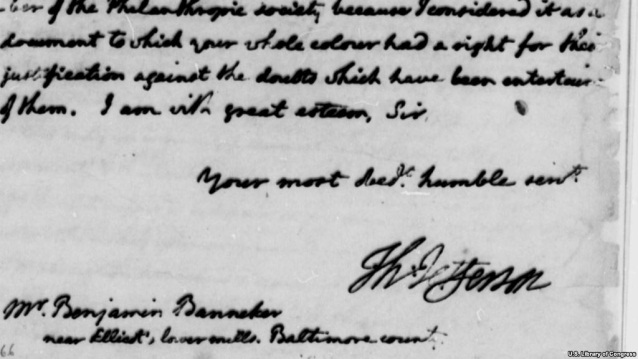 ber of the Philanthropic society, because I considered it as a
document to which your whole colour had a right for their
justification against the doubts which have been entertain
of them. I am with great esteem, Sir,
Your most obedt. humble servt.
Th: Jefferson
Mr. Benjamin Banneker
near Ellicot's, lower mills. Baltimore county
66
U.S. Library of Congress